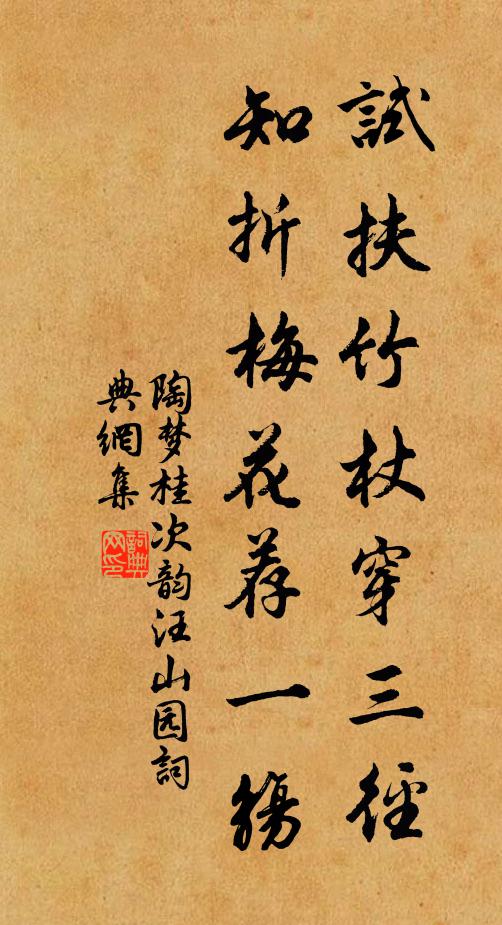 試扶竹杖穿三徑
知折梅花荐一觴
陶梦桂次韵汪山园詞
典網集
詞典网印